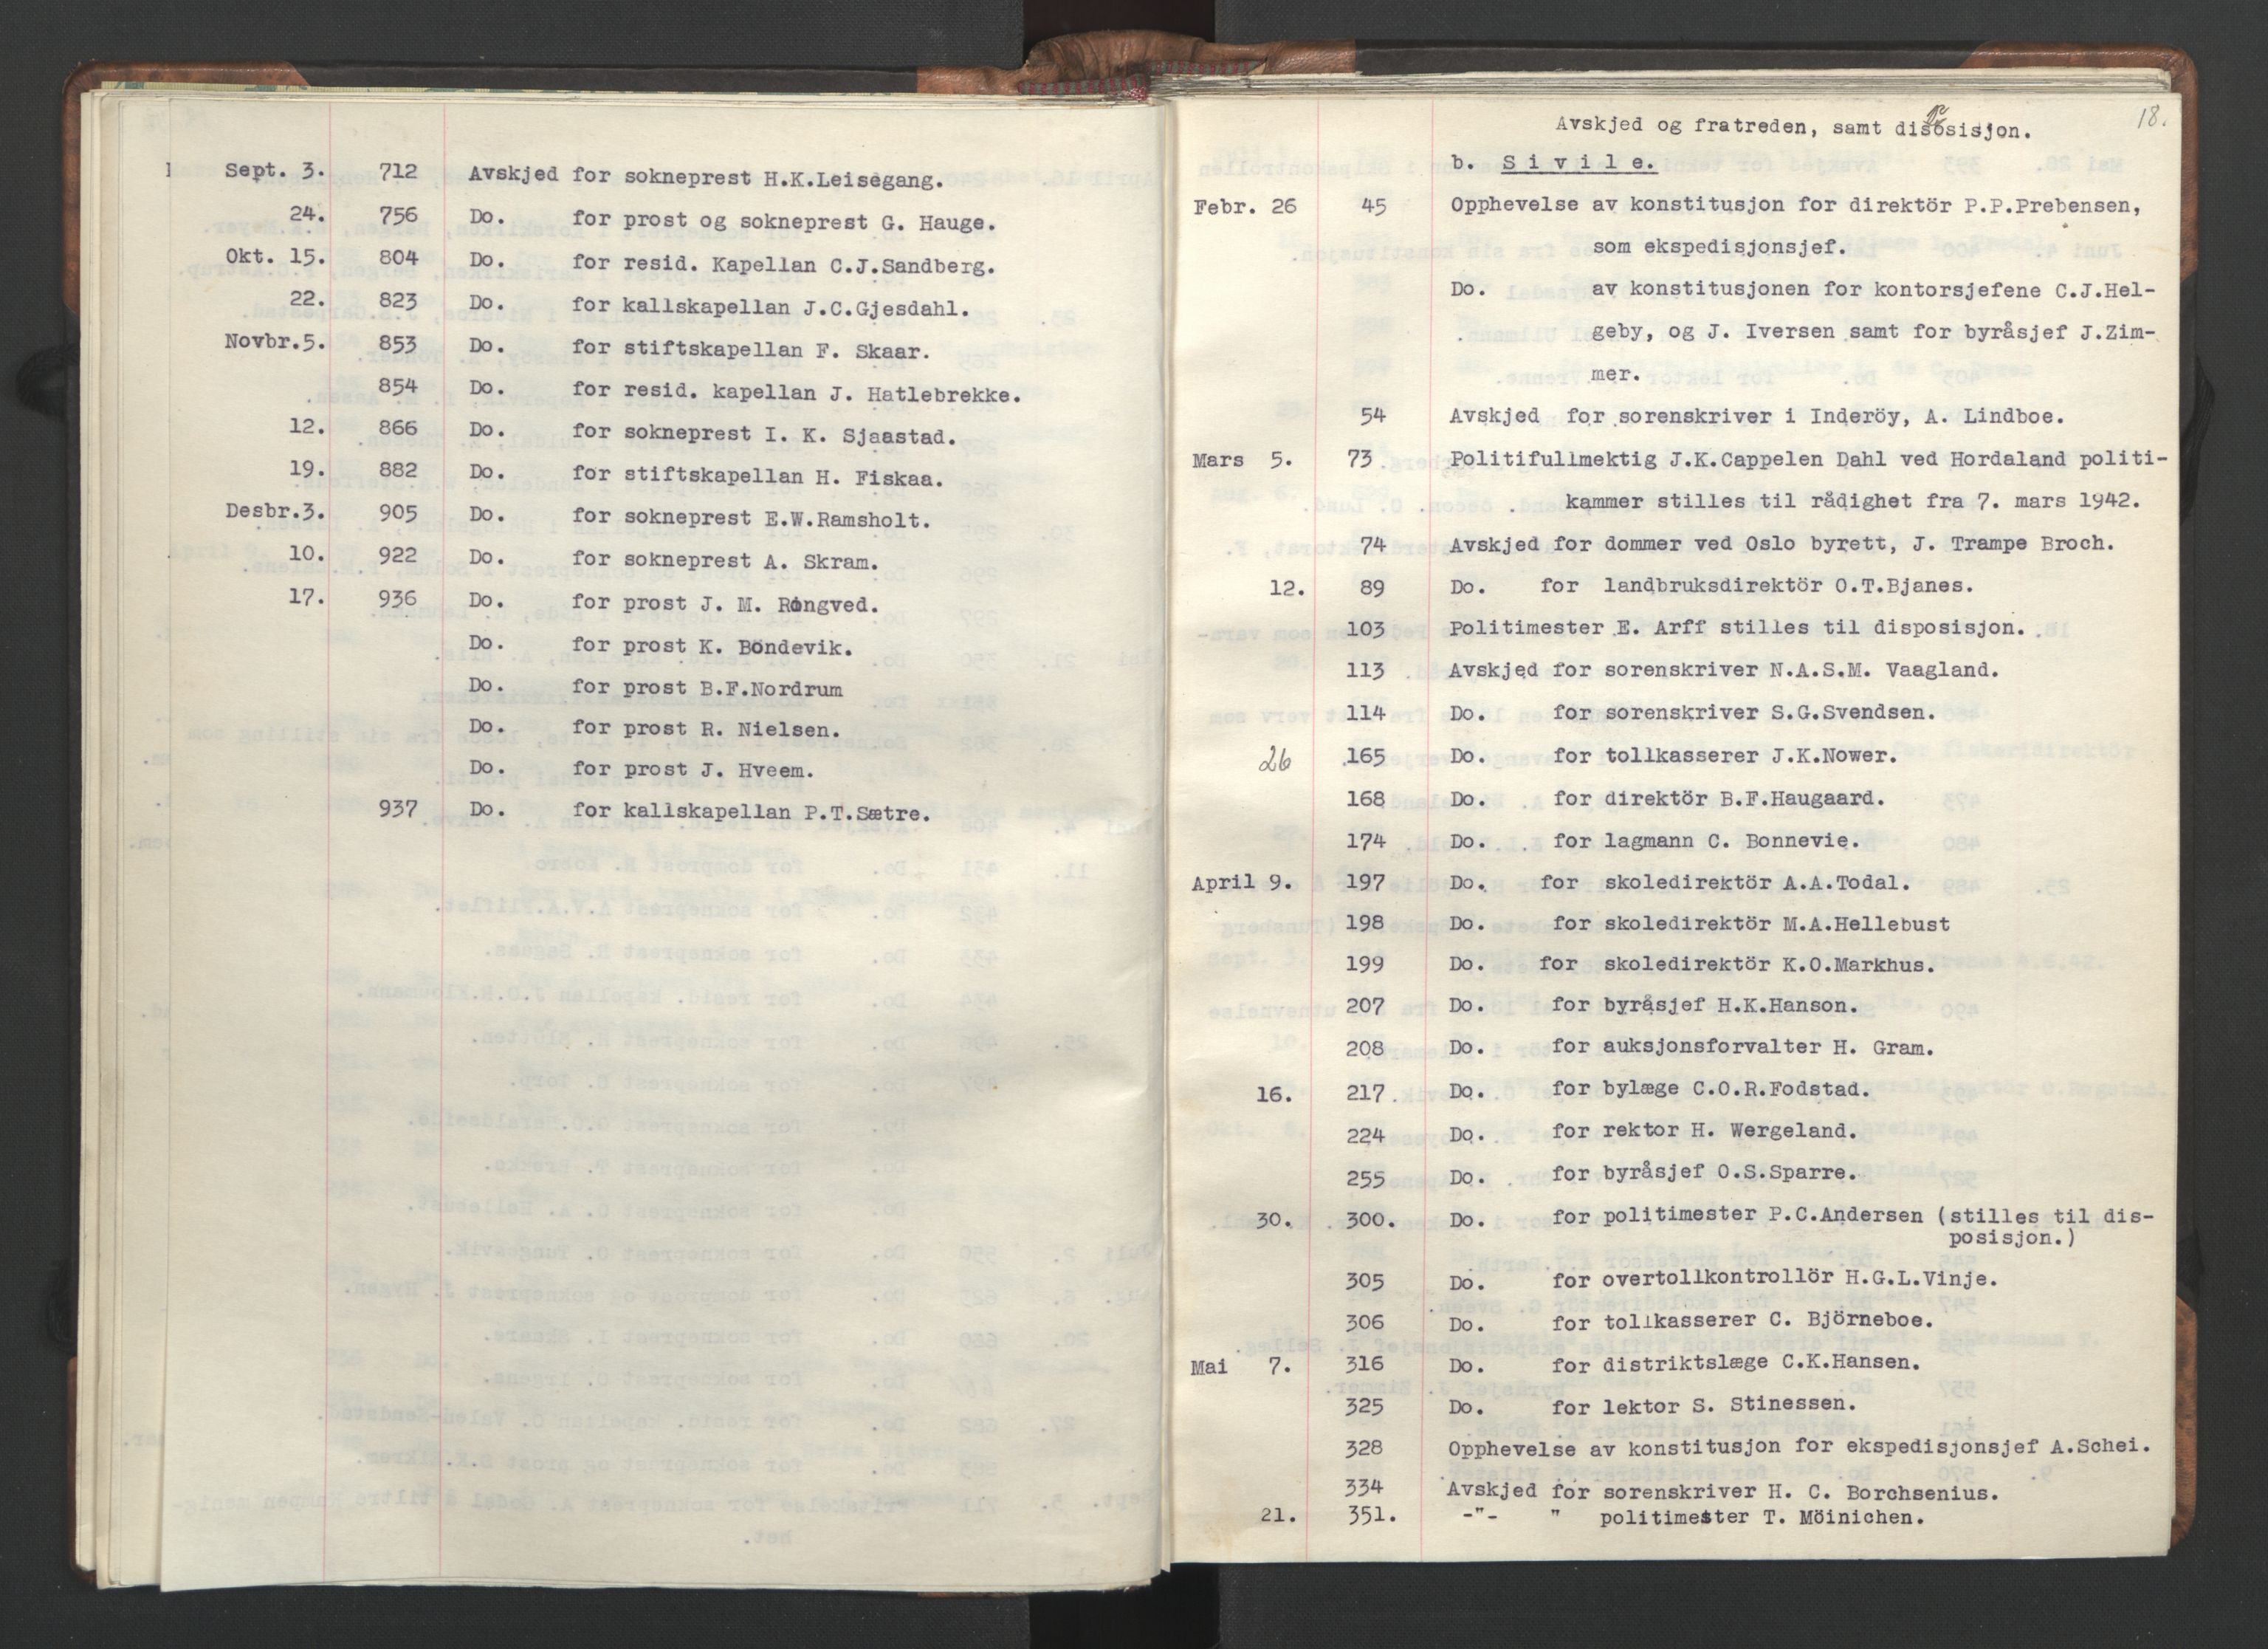 Sept. 3. 712 Avskjed for sokneprest H.K.Leisegang.
24. 756 Do. for prost og sokneprest G. Hauge.
Okt. 15. 804 Do. for resid. Kapellan C.J.Sandberg.
22. 823 Do. for kallskapellan J.C.Gjesdahl.
Novbr.5. 853 Do. for stiftskapellan F. Skaar.
854 Do. for resid. kapellan J. Hatlebrekke.
12. 866 Do. for sokneprest I. K. Sjaastad.
19. 882 Do. for stiftskapellan H. Fiskaa.
Desbr.3. 905 Do. for sokneprest E.W.Ramsholt.
10. 922 Do. for sokneprest A. Skram.
17. 936 Do. for prost J. M. Ringved.
Do. for prost K. Böndevik.
Do. for prost B.F.Nordrum
Do. for prost R. Nielsen.
Do. for prost J. Hveem.
937 Do. for kallskapellan P.T.Sætre.
18.
Avskjed og fratreden, samt disposisjon.
b. Sivile.
Febr. 26 45 Opphevelse av konstitusjon for direktör P.P.Prebensen,
som ekspedisjonsjef.
Do. av konstitusjonen for kontorsjefene C.J.Hel-
geby, og J. Iversen samt for byråsjef J.Zim-
mer.
54 Avskjed for sorenskriver i Inderöy, A. Lindboe.
Mars 5. 73 Politifullmektig J.K.Cappelen Dahl ved Hordaland politi-
kammer stilles til rådighet fra 7. mars 1942.
74 Avskjed for dommer ved Oslo byrett, J. Trampe Broch.
12. 89 Do. for landbruksdirektör O.T.Bjanes.
103 Politimester E. Arff stilles til disposisjon.
113 Avskjed for sorenskriver N.A.S.M. Vaagland.
114 Do. for sorenskriver S.G.Svendsen.
26 165 Do. for tollkasserer J.K.Nower.
168 Do. for direktör B.F.Haugaard.
174 Do. for lagmann C. Bonnevie.
April 9. 197 Do. for skoledirektör A.A.Todal.
198 Do. for skoledirektör M.A.Hellebust
199 Do. for skoledirektör K.O.Markhus.
207 Do. for byråsjef H.K.Hanson.
208 Do. for auksjonsforvalter H. Gram.
16. 217 Do. for bylæge C.O.R.Fodstad.
224 Do. for rektor H. Wergeland.
255 Do. for byråsjef O.S.Sparre.
30. 300. Do. for politimester P.C.Andersen (stilles til dis-
posisjon.)
305 Do. for overtollkontrollör H.G.L.Vinje.
306 Do. for tollkasserer C. Björneboe.
Mai 7. 316 Do. for distriktslæge C.K.Hansen.
325 Do. for lektor S. Stinessen.
328 Opphevelse av konstitusjon for ekspedisjonsjef A.Schei.
334 Avskjed for sorenskriver H. C. Borchsenius.
21. 351. -"- " politimester T. Möinichen.